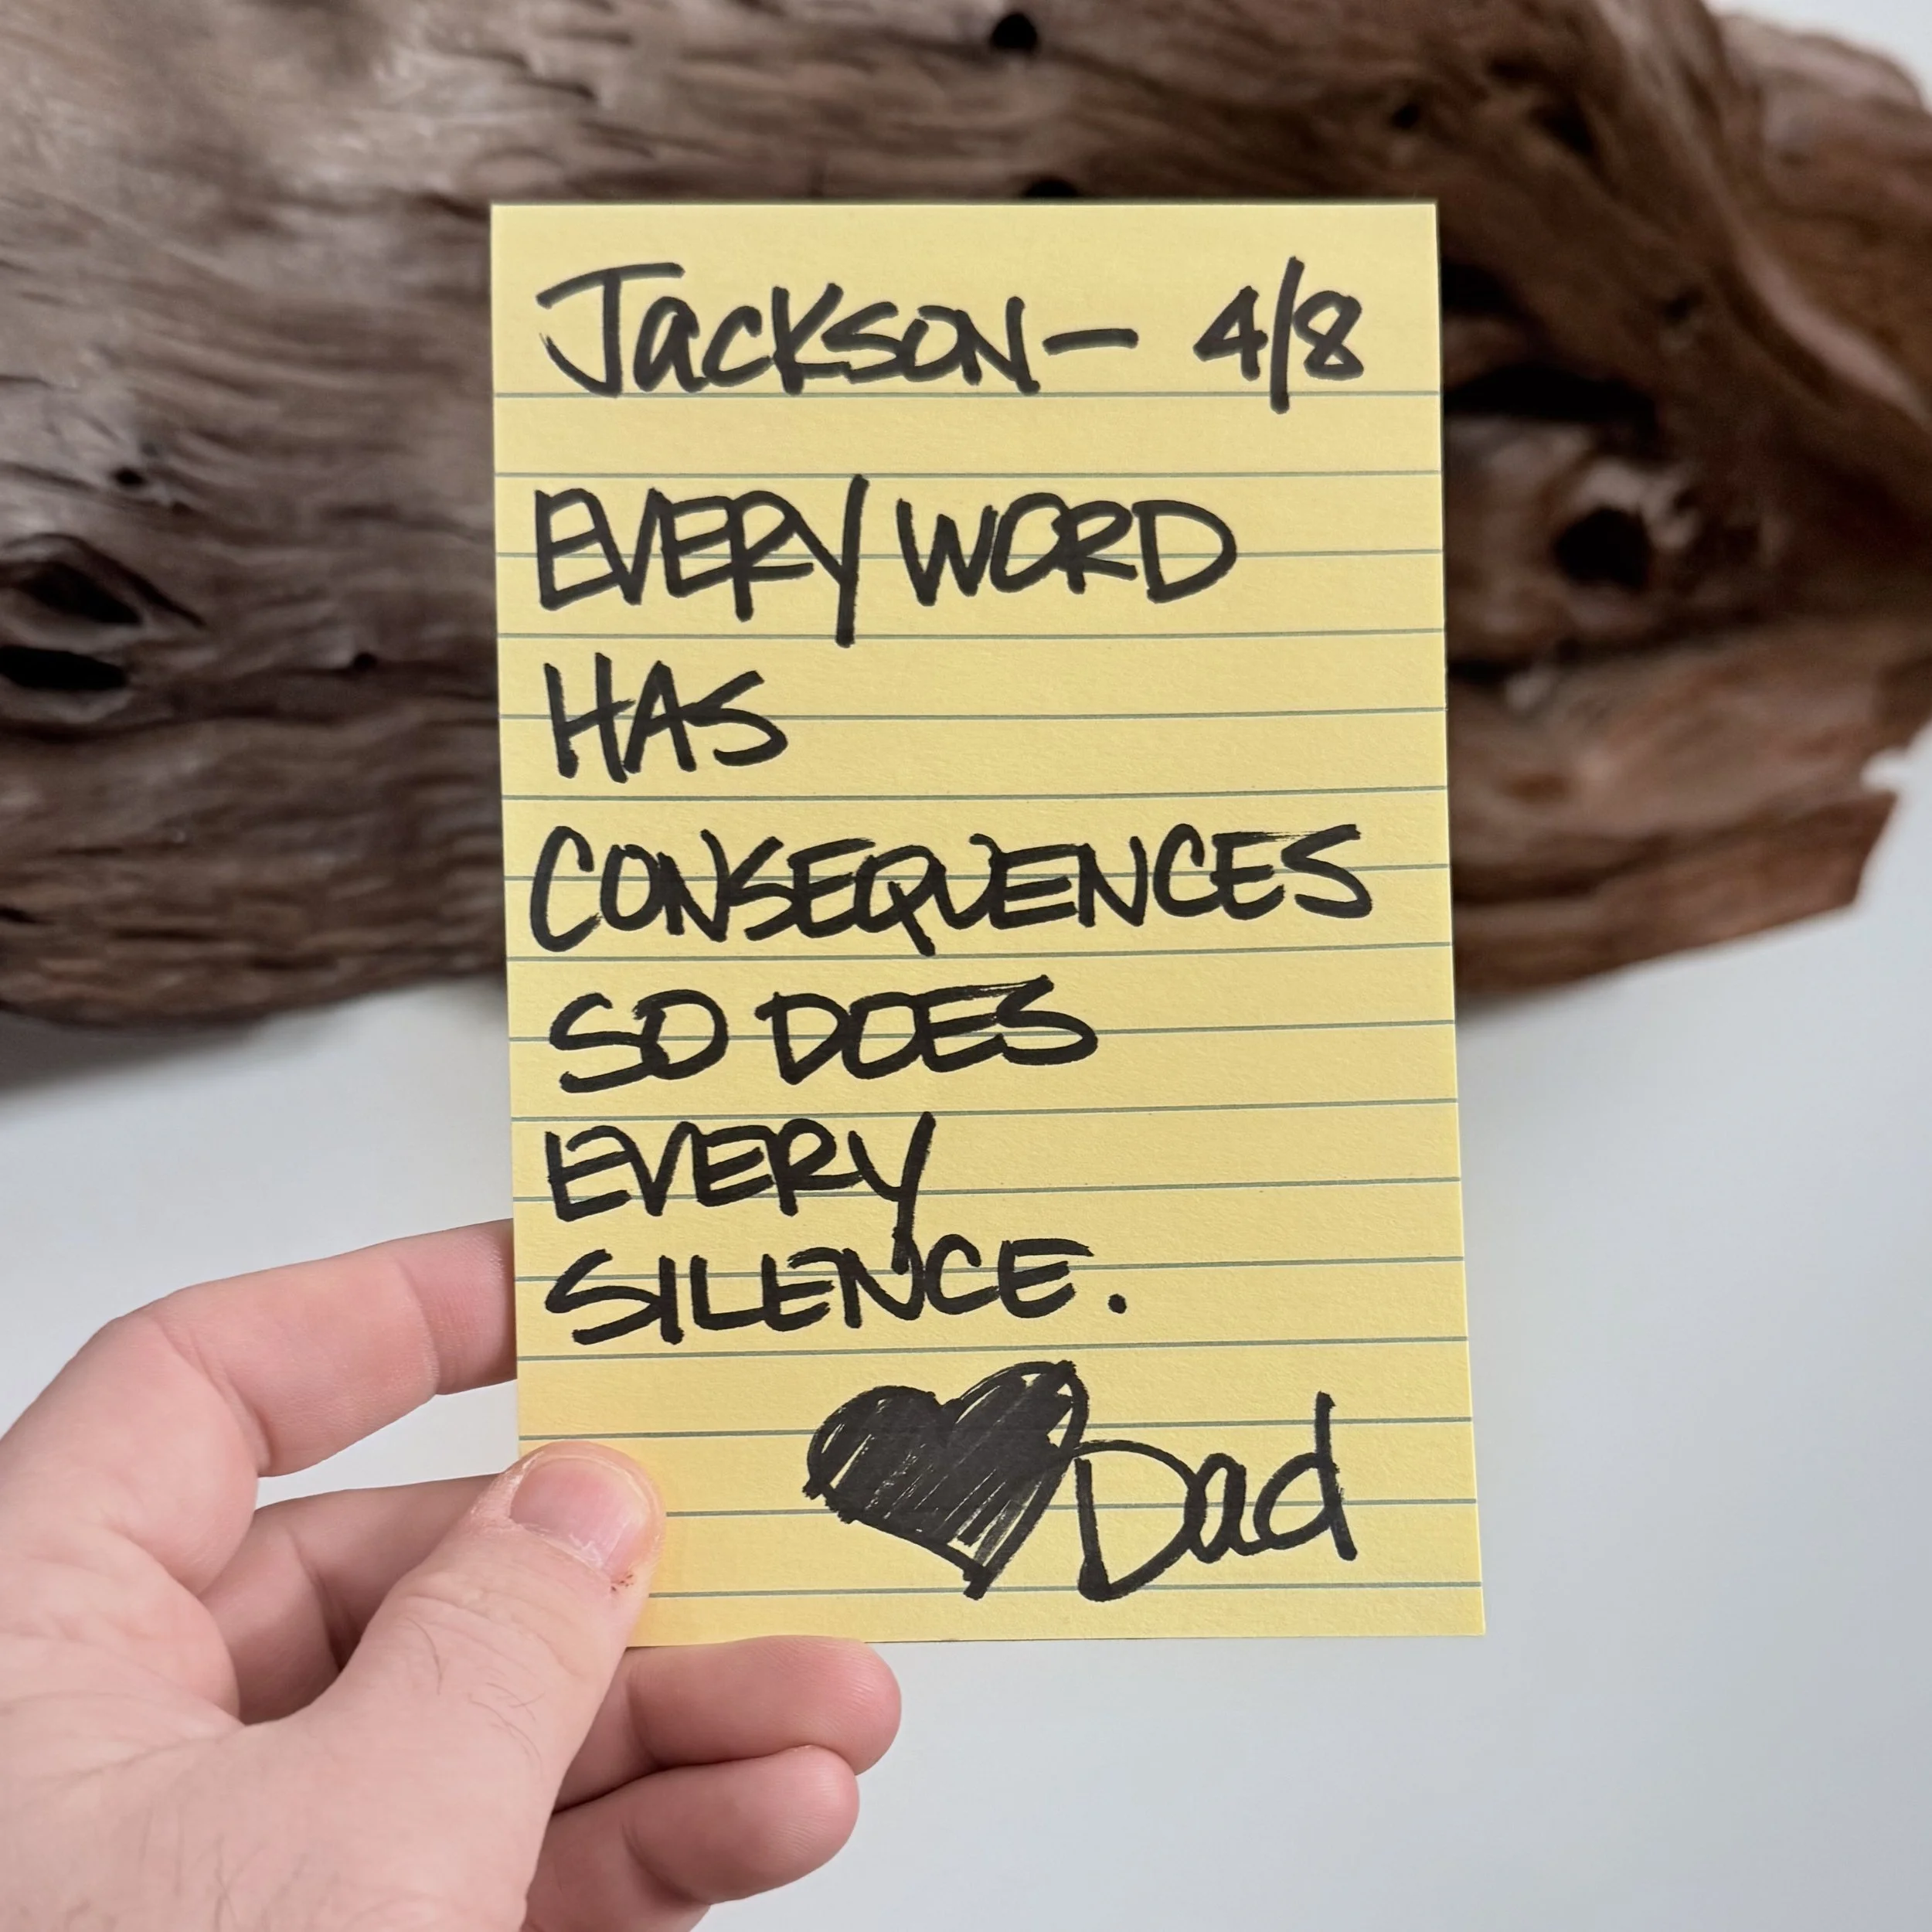 Jackson- 4/8
EVERY WORD
HAS
CONSEQUENCES
SO DOES
EVERY
SILENCE.
Dad